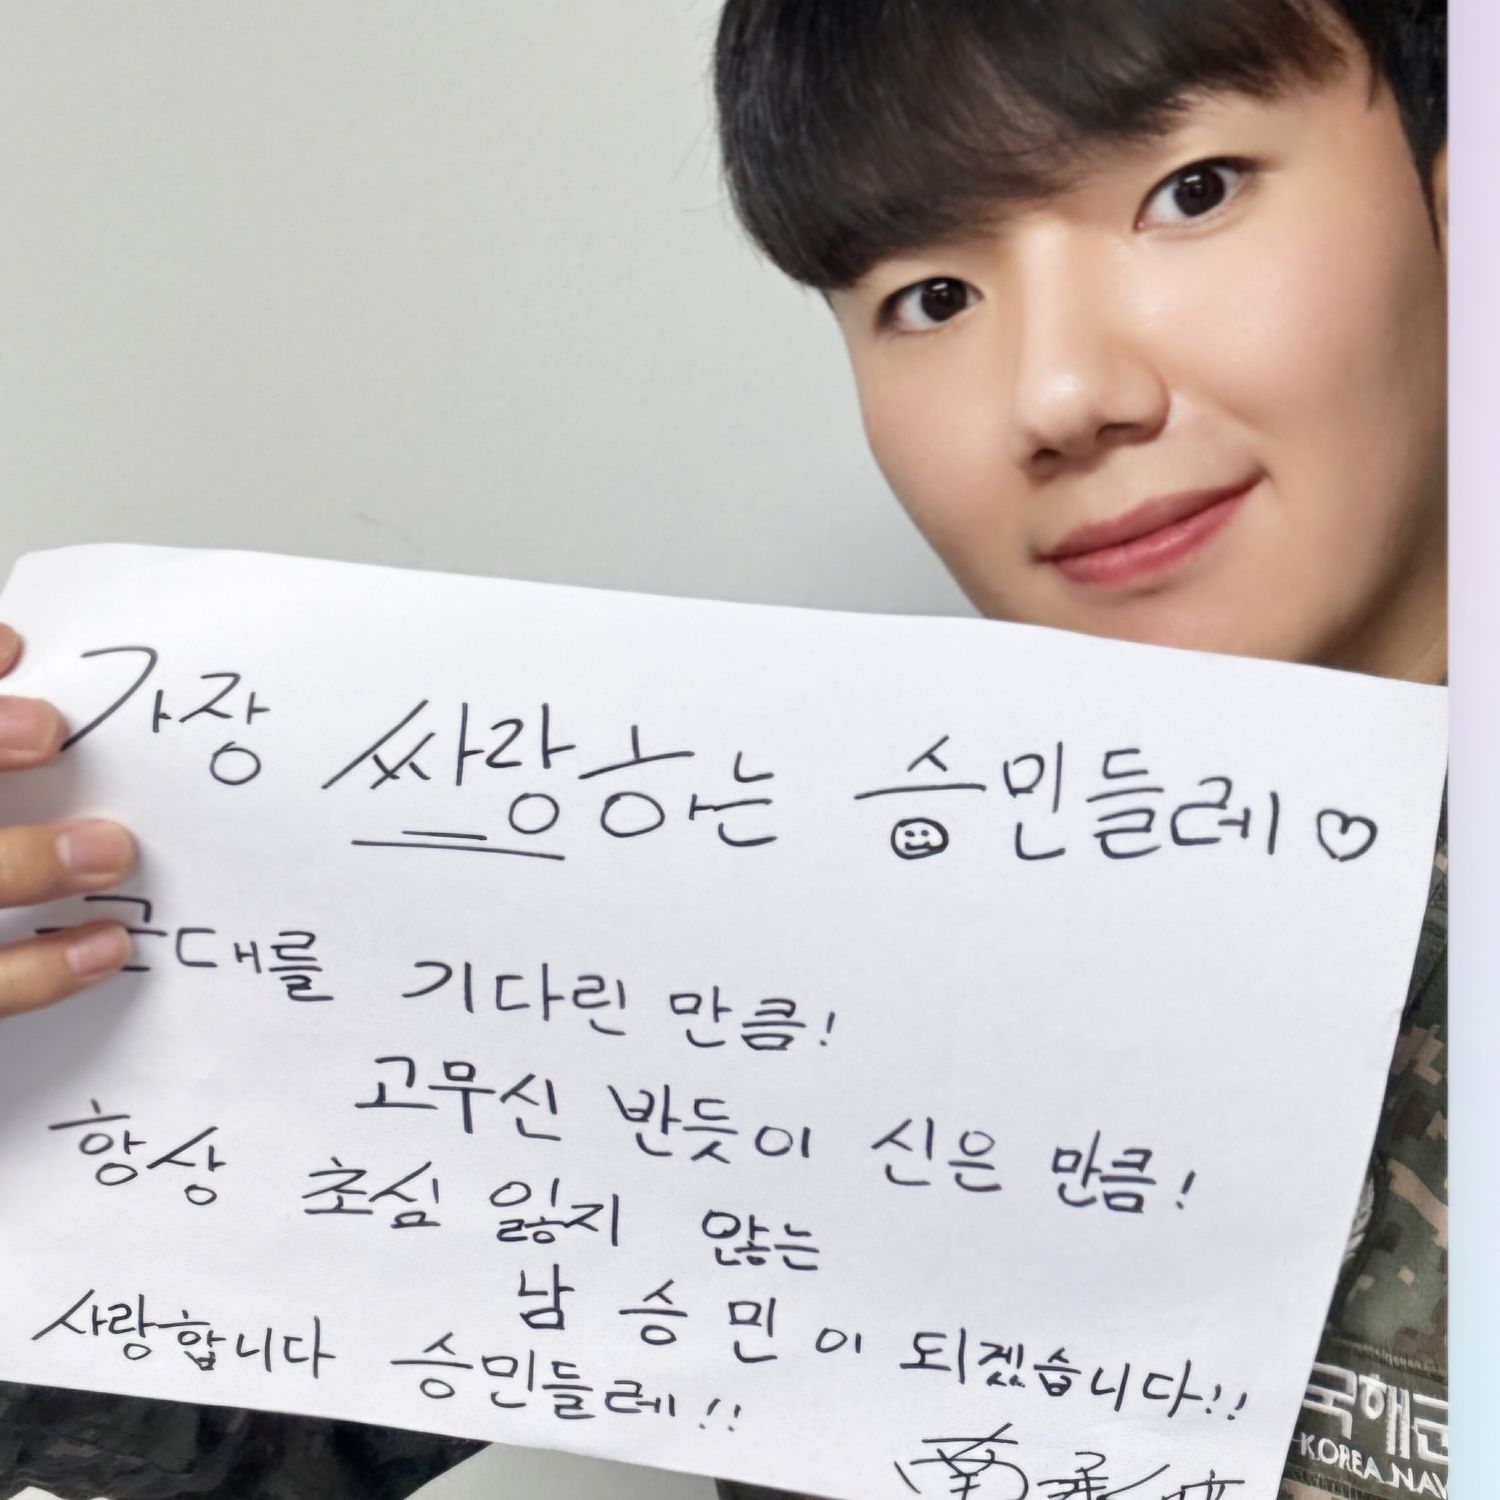 가장 싸랑하는 승민들레♡
군대를 기다린 만큼!
고무신 반듯이 신은 만큼!
항상 초심 잃지 않는
남승민이 되겠습니다!!
사랑합니다 승민들레!!
국해군
KOREA NAV